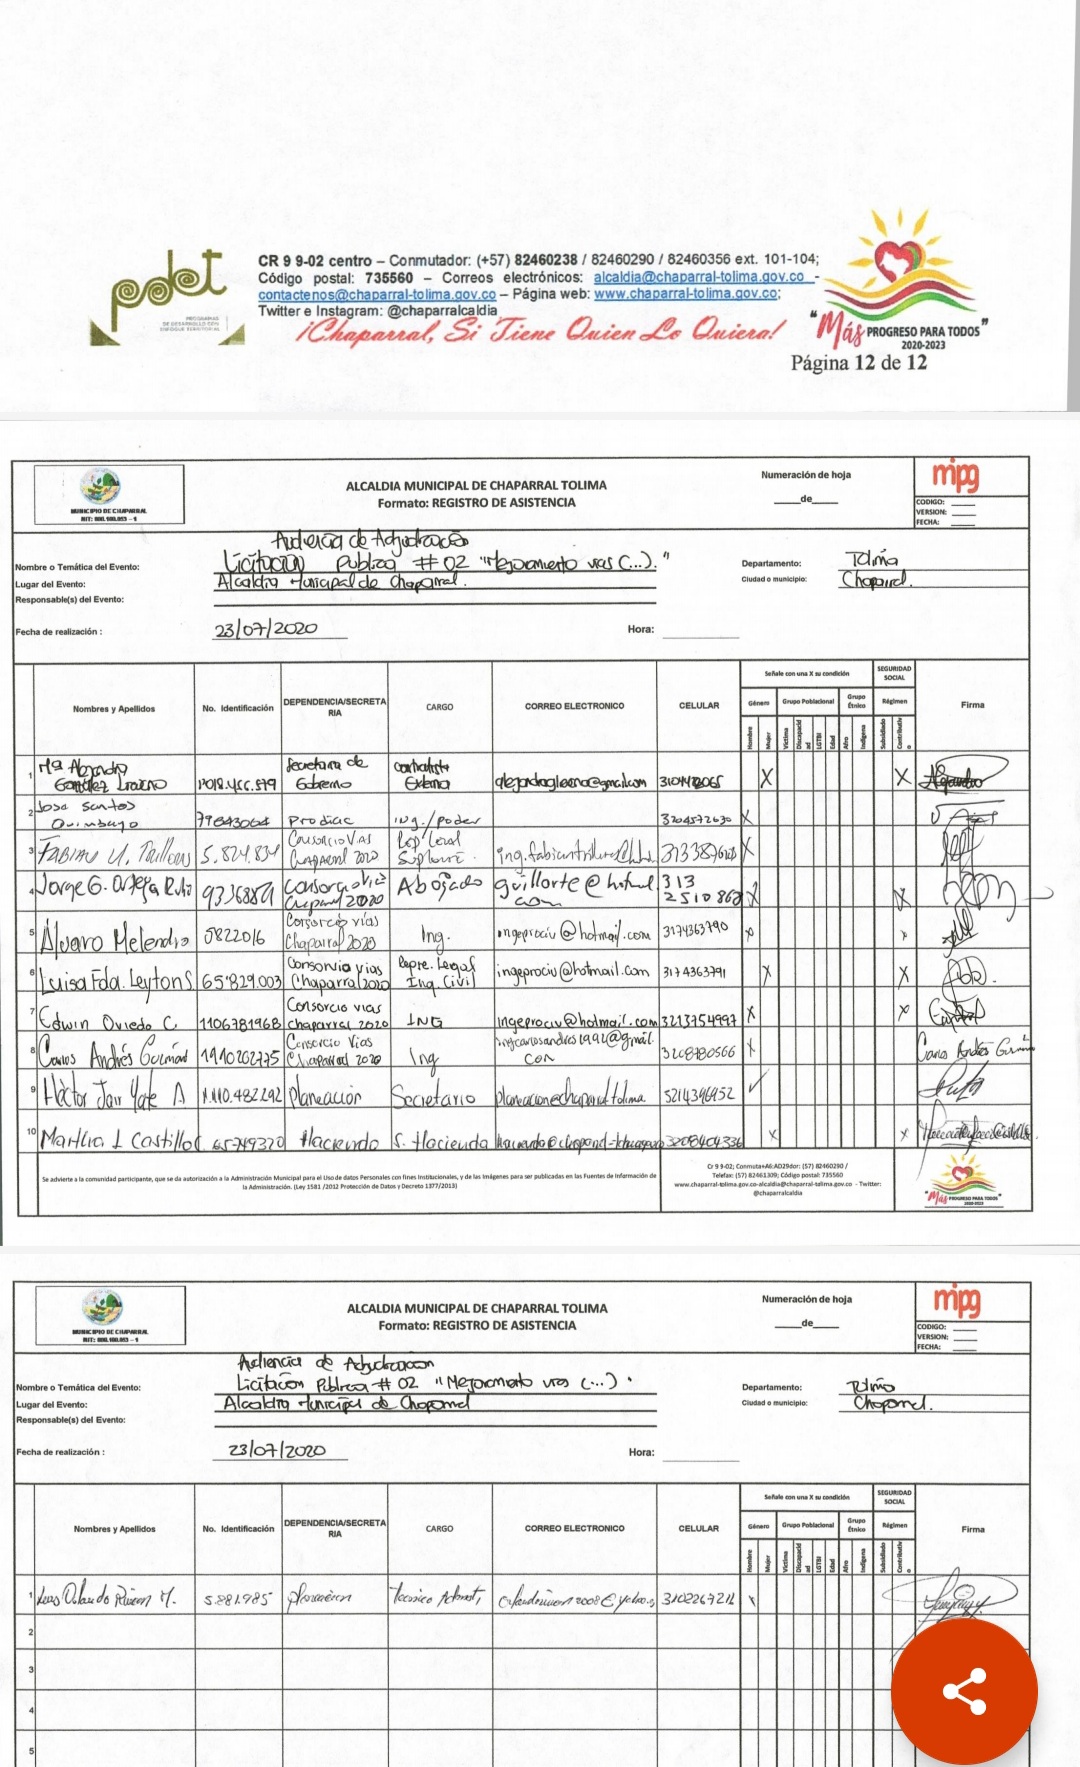 pdet
PROGRAMAS
DE DESARROLLO CON
ENFOQUE TERRITORIAL
CR 9 9-02 centro – Conmutador: (+57) 82460238 / 82460290 / 82460356 ext. 101-104;
Código postal: 735560 – Correos electrónicos: alcaldia@chaparral-tolima.gov.co -
contactenos@chaparral-tolima.gov.co – Página web: www.chaparral-tolima.gov.co;
Twitter e Instagram: @chaparralcaldia
¡Chaparral, Si Tiene Quien Lo Quiera!
"Más PROGRESO PARA TODOS"
2020-2023
Página 12 de 12
MUNICIPIO DE CHAPARRAL
NIT: 800.100.053 – 1
ALCALDIA MUNICIPAL DE CHAPARRAL TOLIMA
Formato: REGISTRO DE ASISTENCIA
Numeración de hoja
____de____
mipg
CODIGO:
VERSION:
FECHA:
Audiencia de Adjudicación
Nombre o Temática del Evento: Licitación Publica # 02 "Mejoramiento vias (...)."
Departamento: Tolima
Lugar del Evento: Alcaldia Municipal de Chaparral.
Ciudad o municipio: Chaparral.
Responsable(s) del Evento:
Fecha de realización : 23/07/2020 Hora:
Nombres y Apellidos No. Identificación DEPENDENCIA/SECRETARIA CARGO CORREO ELECTRONICO CELULAR Señale con una X su condición SEGURIDAD SOCIAL Firma
Género Grupo Poblacional Grupo Étnico Régimen
Hombre Mujer Víctima Discapacidad LGTBI Edad Afro Indígena Subsidiado Contributivo
1 Mª Alejandra González Secretaria de Gobierno contratista Externa X X
2 Jose Santos Quimbayo 79643064 Prodiac ing./poder 3204572630 X
3 5.824.834 Consorcio Vias Chaparral 2020 Rep Legal Suplente X
4 Jorge G. Ortega Consorcio vias Chaparral 2020 Abogado guillorte@hotmail.com 313 2510862 X X
5 Alvaro Melendro 5822016 Consorcio vías Chaparral 2020 Ing. ingeprociv@hotmail.com 3174363790 x x
6 Luisa Fda. Leyton S 65'829.003 Consorvia vias Chaparral 2020 Repre. Legal Ing. Civil ingeprociv@hotmail.com 3174363791 X X
7 Edwin Oviedo C. 1106781968 Consorcio vias chaparral 2020 ING ingeprociv@hotmail.com 3213754997 X X
8 Carlos Andrés Guzmán Consorcio Vias Chaparral 2020 Ing 3208780566 X Carlos Andrés
9 Héctor Jair Yate A 1.110.482.292 planeación Secretario 5214346952
10 Martha L Castillo Hacienda S. Hacienda 3208404336 x x
Se advierte a la comunidad participante, que se da autorización a la Administración Municipal para el Uso de datos Personales con fines Institucionales, y de las Imágenes para ser publicadas en las Fuentes de Información de
la Administración. (Ley 1581 /2012 Protección de Datos y Decreto 1377/2013)
Cr 9 9-02; Conmuta+A6:AD29dor: (57) 82460290 /
Telefax: (57) 82461309; Código postal: 735560
www.chaparral-tolima.gov.co-alcaldia@chaparral-tolima.gov.co - Twitter:
@chaparralcaldia
"Más PROGRESO PARA TODOS"
2020-2023
MUNICIPIO DE CHAPARRAL
NIT: 800.100.053 – 1
ALCALDIA MUNICIPAL DE CHAPARRAL TOLIMA
Formato: REGISTRO DE ASISTENCIA
Numeración de hoja
____de____
mipg
CODIGO:
VERSION:
FECHA:
Audiencia de Adjudicacion
Nombre o Temática del Evento: Licitación Pública # 02 "Mejoramiento vias (...)".
Departamento: Tolima
Lugar del Evento: Alcaldia Municipal de Chaparral
Ciudad o municipio: Chaparral.
Responsable(s) del Evento:
Fecha de realización : 23/07/2020 Hora:
Nombres y Apellidos No. Identificación DEPENDENCIA/SECRETARIA CARGO CORREO ELECTRONICO CELULAR Señale con una X su condición SEGURIDAD SOCIAL Firma
Género Grupo Poblacional Grupo Étnico Régimen
Hombre Mujer Víctima Discapacidad LGTBI Edad Afro Indígena Subsidiado Contributivo
1 Luis Orlando M. 5.881.985 planeacion Tecnico 3102267211 x
2
3
4
5